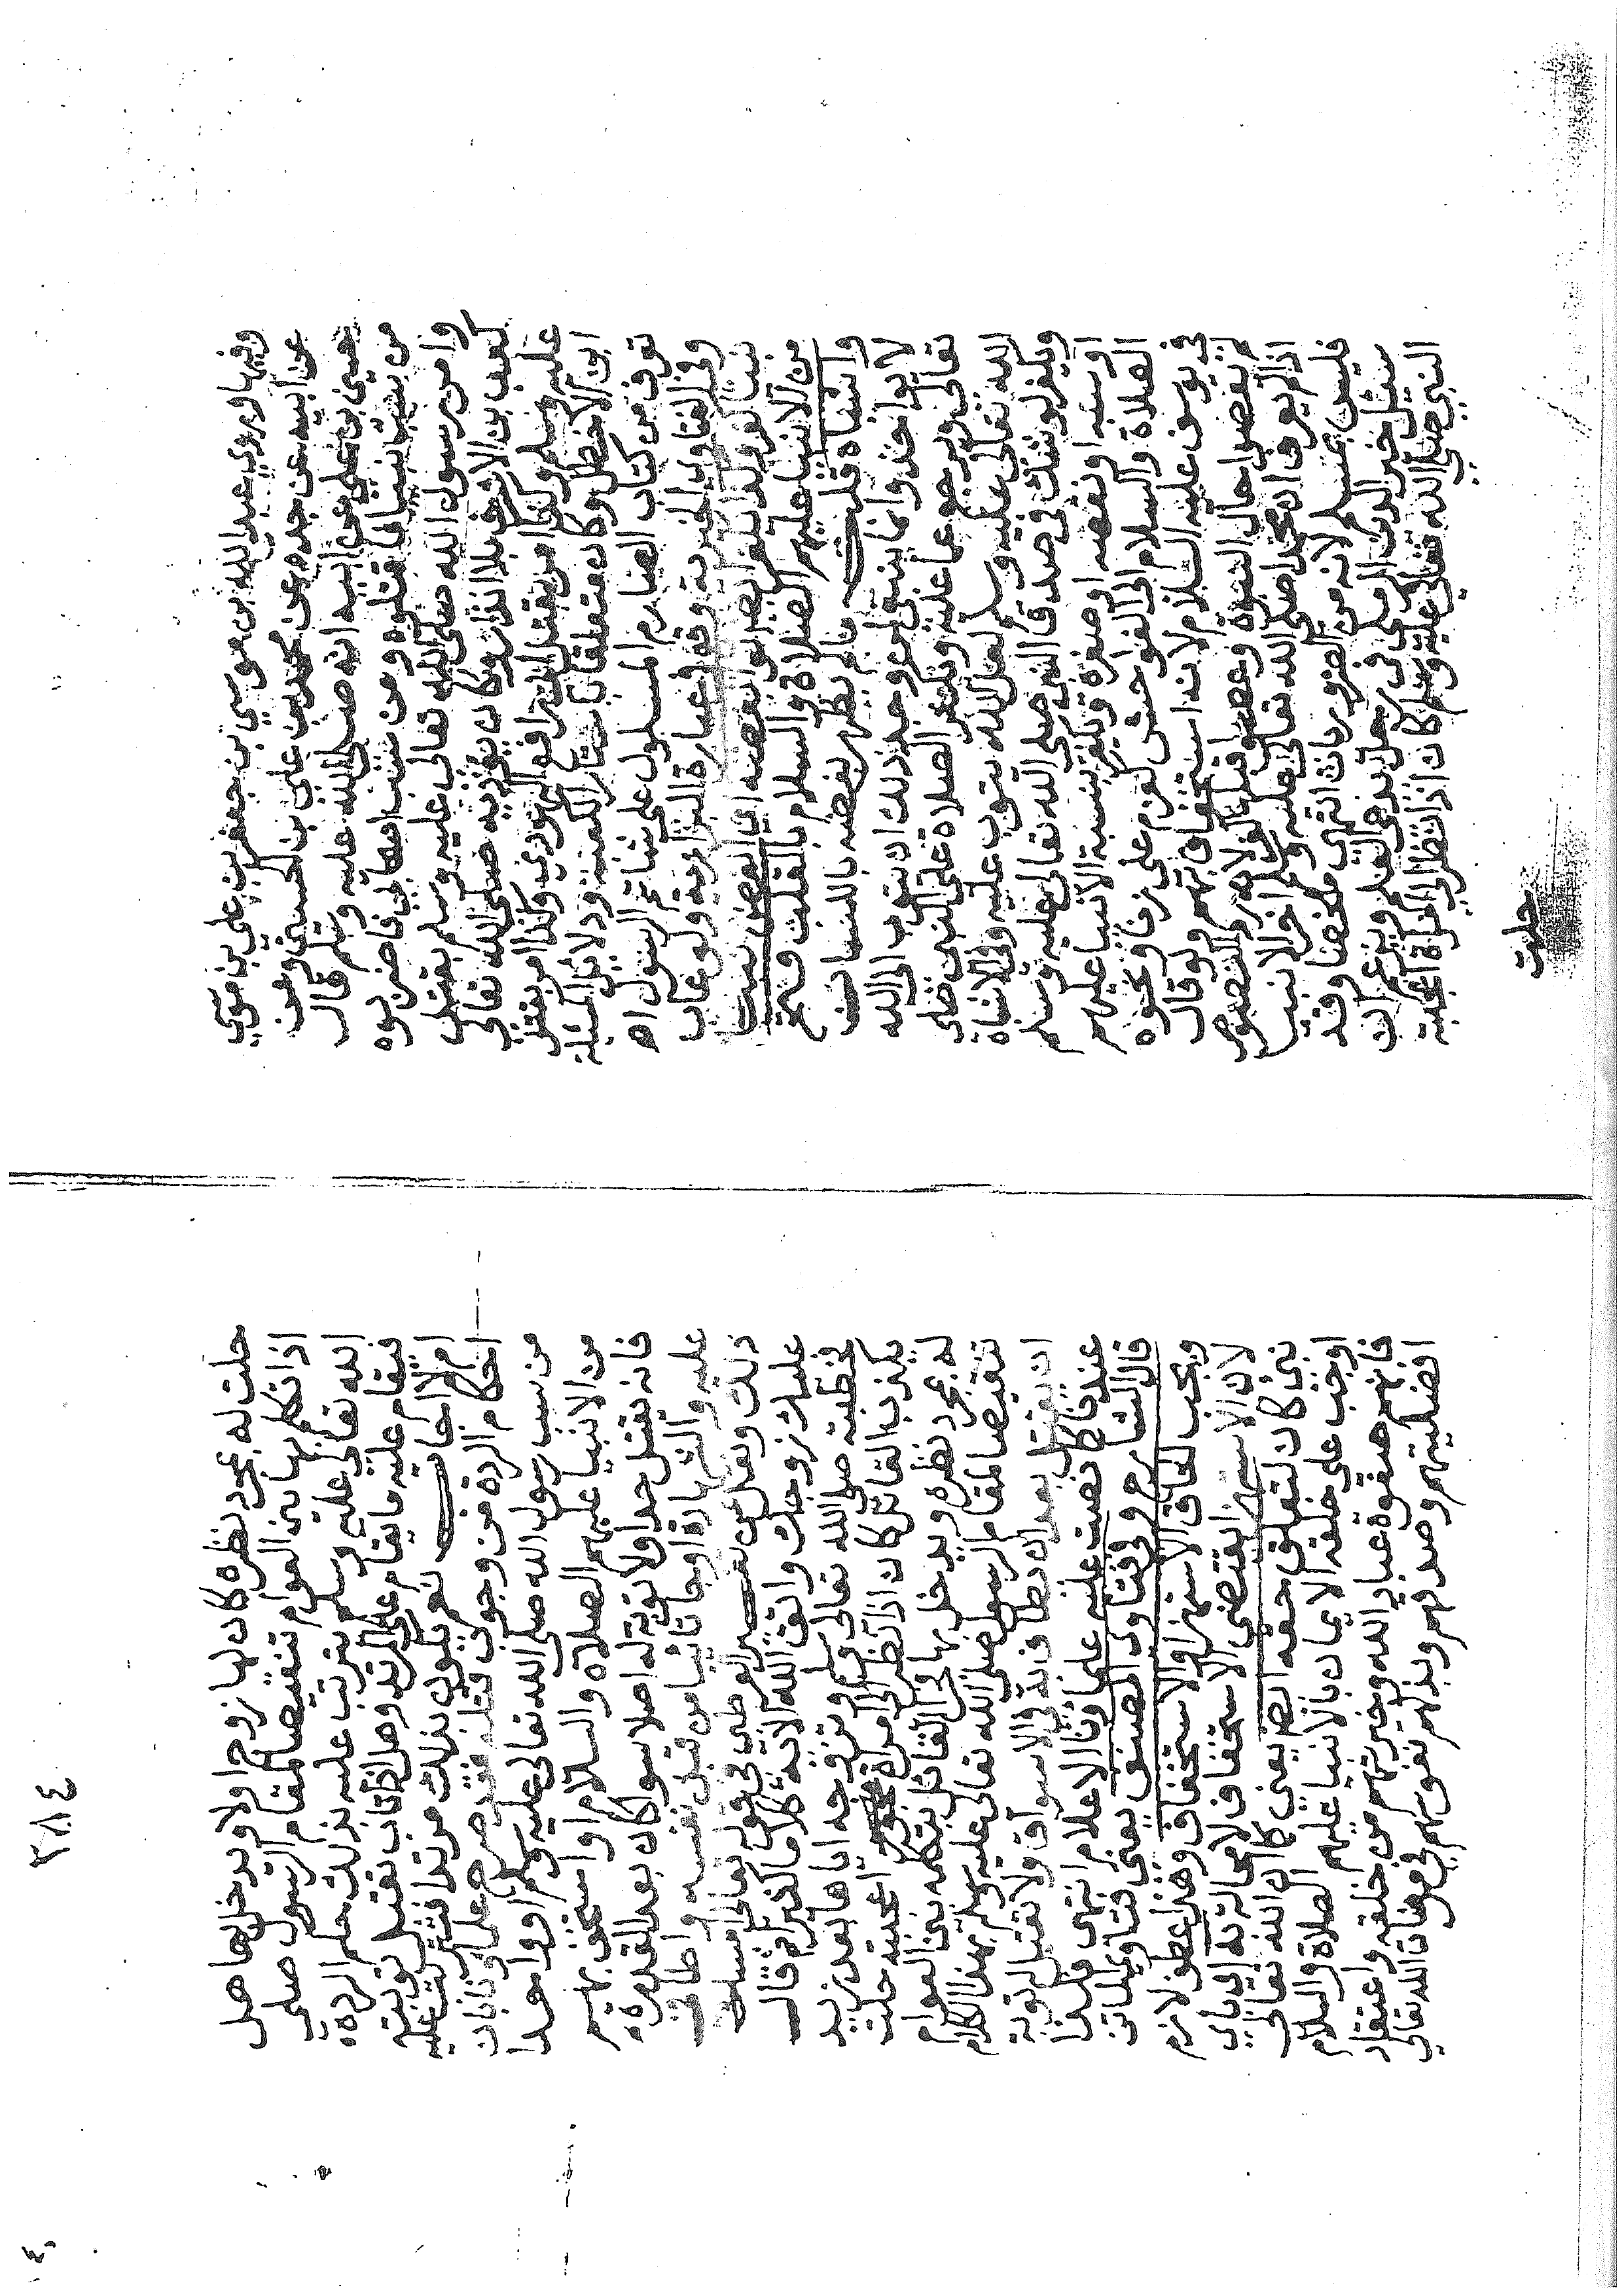 وفيها ويروي عبد الله بن موسى بن جعفر بن علي بن موسى
عن ابيه عن جده عن محمد بن علي بن الحسين وعن
حسين بن علي عن ابيه انه صلى الله عليه وسلم قال
من سب نبيا فاقتلوه ومن سب اصحابي فاضربوه
وامر رسول الله صلى الله تعالى عليه وسلم بقتل
كعب بن الاشرف بلا انذار وكان يؤذيه صلى الله تعالى
عليه وسلم وكذا امر بقتل ابي رافع اليهودي وكذا امر بقتل
ابن الاخطل وكان متعلقا باستار الكعبة ودلائل المسئلة
تعرف من كتاب الصارم المسلول على شاتم الرسول اه
وفي الفتاوى الخيرية وقع في عبارة البزازية ولو عاب
نبيا كفر
من الانبيا عليهم الصلاة والسلام بالقلب
والاشباه قلت ما لم يظهر بغضه باللسان
لا يؤاخذ وانما ينبغي لو وجد ذلك ان يتوب الى الله
تعالى ويرجع عما عليه ويكثر الصلاة على النبي صلى
الله تعالى عليه وسلم لعل الله يتوب عليه وفي الاشباه
ويكفر لو شك في صدق النبي صلى الله تعالى عليه وسلم
او سبه او نقصه او صغره ويكفر بنسبة الانبيا عليهم
الصلاة والسلام الى الفواحش كعزم على زنا ونحوه
في يوسف عليه السلام لانه استخفاف بهم ولو قال
لم يعصوا حال النبوة وقبلها كفر لانه رد النصوص
اذا لم يعرف ان محمدا صلى الله تعالى عليه وسلم اخر الانبيا
فليس بمسلم لانه من الضروريات انتهى ملخصا وقد
سئل خير الدين الرملي في رجل يدعي العلم ويزعم ان
النبي صلى الله تعالى عليه وسلم كان اذا نظر الى امراة اعجبته
حلت
٣٨٤
حلت له بمجرد نظره كان لها زوج او لا ويدخل بها هل
اذا تكلم بها بين العوام تنقيصا لمقام الرسول صلى
الله تعالى عليه وسلم يترتب عليه بذلك حكم الردة
فيقام عليه ما يقام على المرتد وهل اذا تاب تقبل توبته
ام لا اجاب نعم يكون بذلك مرتدا فتترتب عليه
احكام الردة من وجوب قتله فقد صرح علماؤنا بان
من سب رسول الله صلى الله تعالى عليه وسلم او واحدا
من الانبيا عليهم الصلاة والسلام او استخف بهم
فانه يقتل حدا ولا توبة له اصلا سواء كان بعد القدرة
عليه والشهادة او جا تائبا من قبل نفسه واطال في
ذلك ونقل عن تفسير القرطبي في قوله تعالى امسك
عليك زوجك واتق الله الآية كلاما كثيرا ثم قال
فخطبته صلى الله تعالى عليه وسلم وتزوجه اياها بعد زيد
يكذب القائل كان اذا نظر الى امراة اعجبته حلت
له بمجرد نظره ويدخل بها وفي القائل بتكلمه بين العوام
تنقيصا لمقام الرسول صلى الله تعالى عليه وسلم بهذا الكلام
ان يقتل بعد ان يطاف به في الاسواق ولا تقبل التوبة
عندنا كما نصت عليه علماؤنا الاعلام انتهى فلذا
قال الشارح وفي فتاوى المصنف يعني فتاوي الماتن
ويجب الحاق الاستهزا والاستخفاف وهذا عطف لازم
لان الاستهزا يقتضي الاستخفاف لا محالة به اي باي
نبي كان لتعلق حقه ايضا يعني كما ان الله تعالى
اوجب على خلقه الايمان بالانبيا عليهم الصلاة والسلام
فانهم صفوة عباد الله وخيرتهم من خلقه واعتقاد
افضليتهم وصدقهم وبذلهم نفوسهم في مرضات الله تعالى